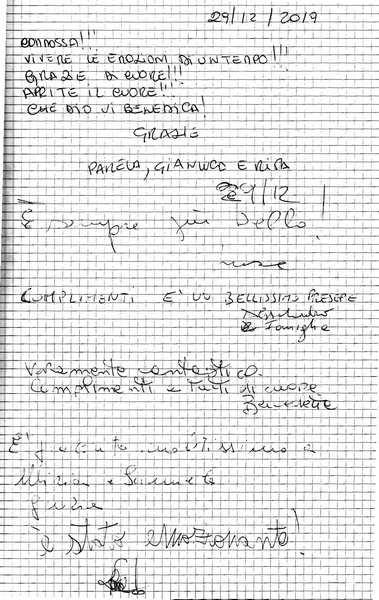 29/12/2019
COMMOSSA!!!
VIVERE LE EMOZIONI DI UN TEMPO!!!
GRAZIE DI CUORE!!!
APRITE IL CUORE!!!
CHE DIO VI BENEDICA!
GRAZIE
PAMELA, GIANLUCA E RITA
29/12
È sempre più bello!
COMPLIMENTI E' UN BELLISSIMO PRESEPE
Alessandro
e Famiglia
Veramente fantastico.
Complimenti a tutti di cuore
Benedetta
E' piaciuto moltissimo a
e Samuele
Grazie
è stato emozionante!